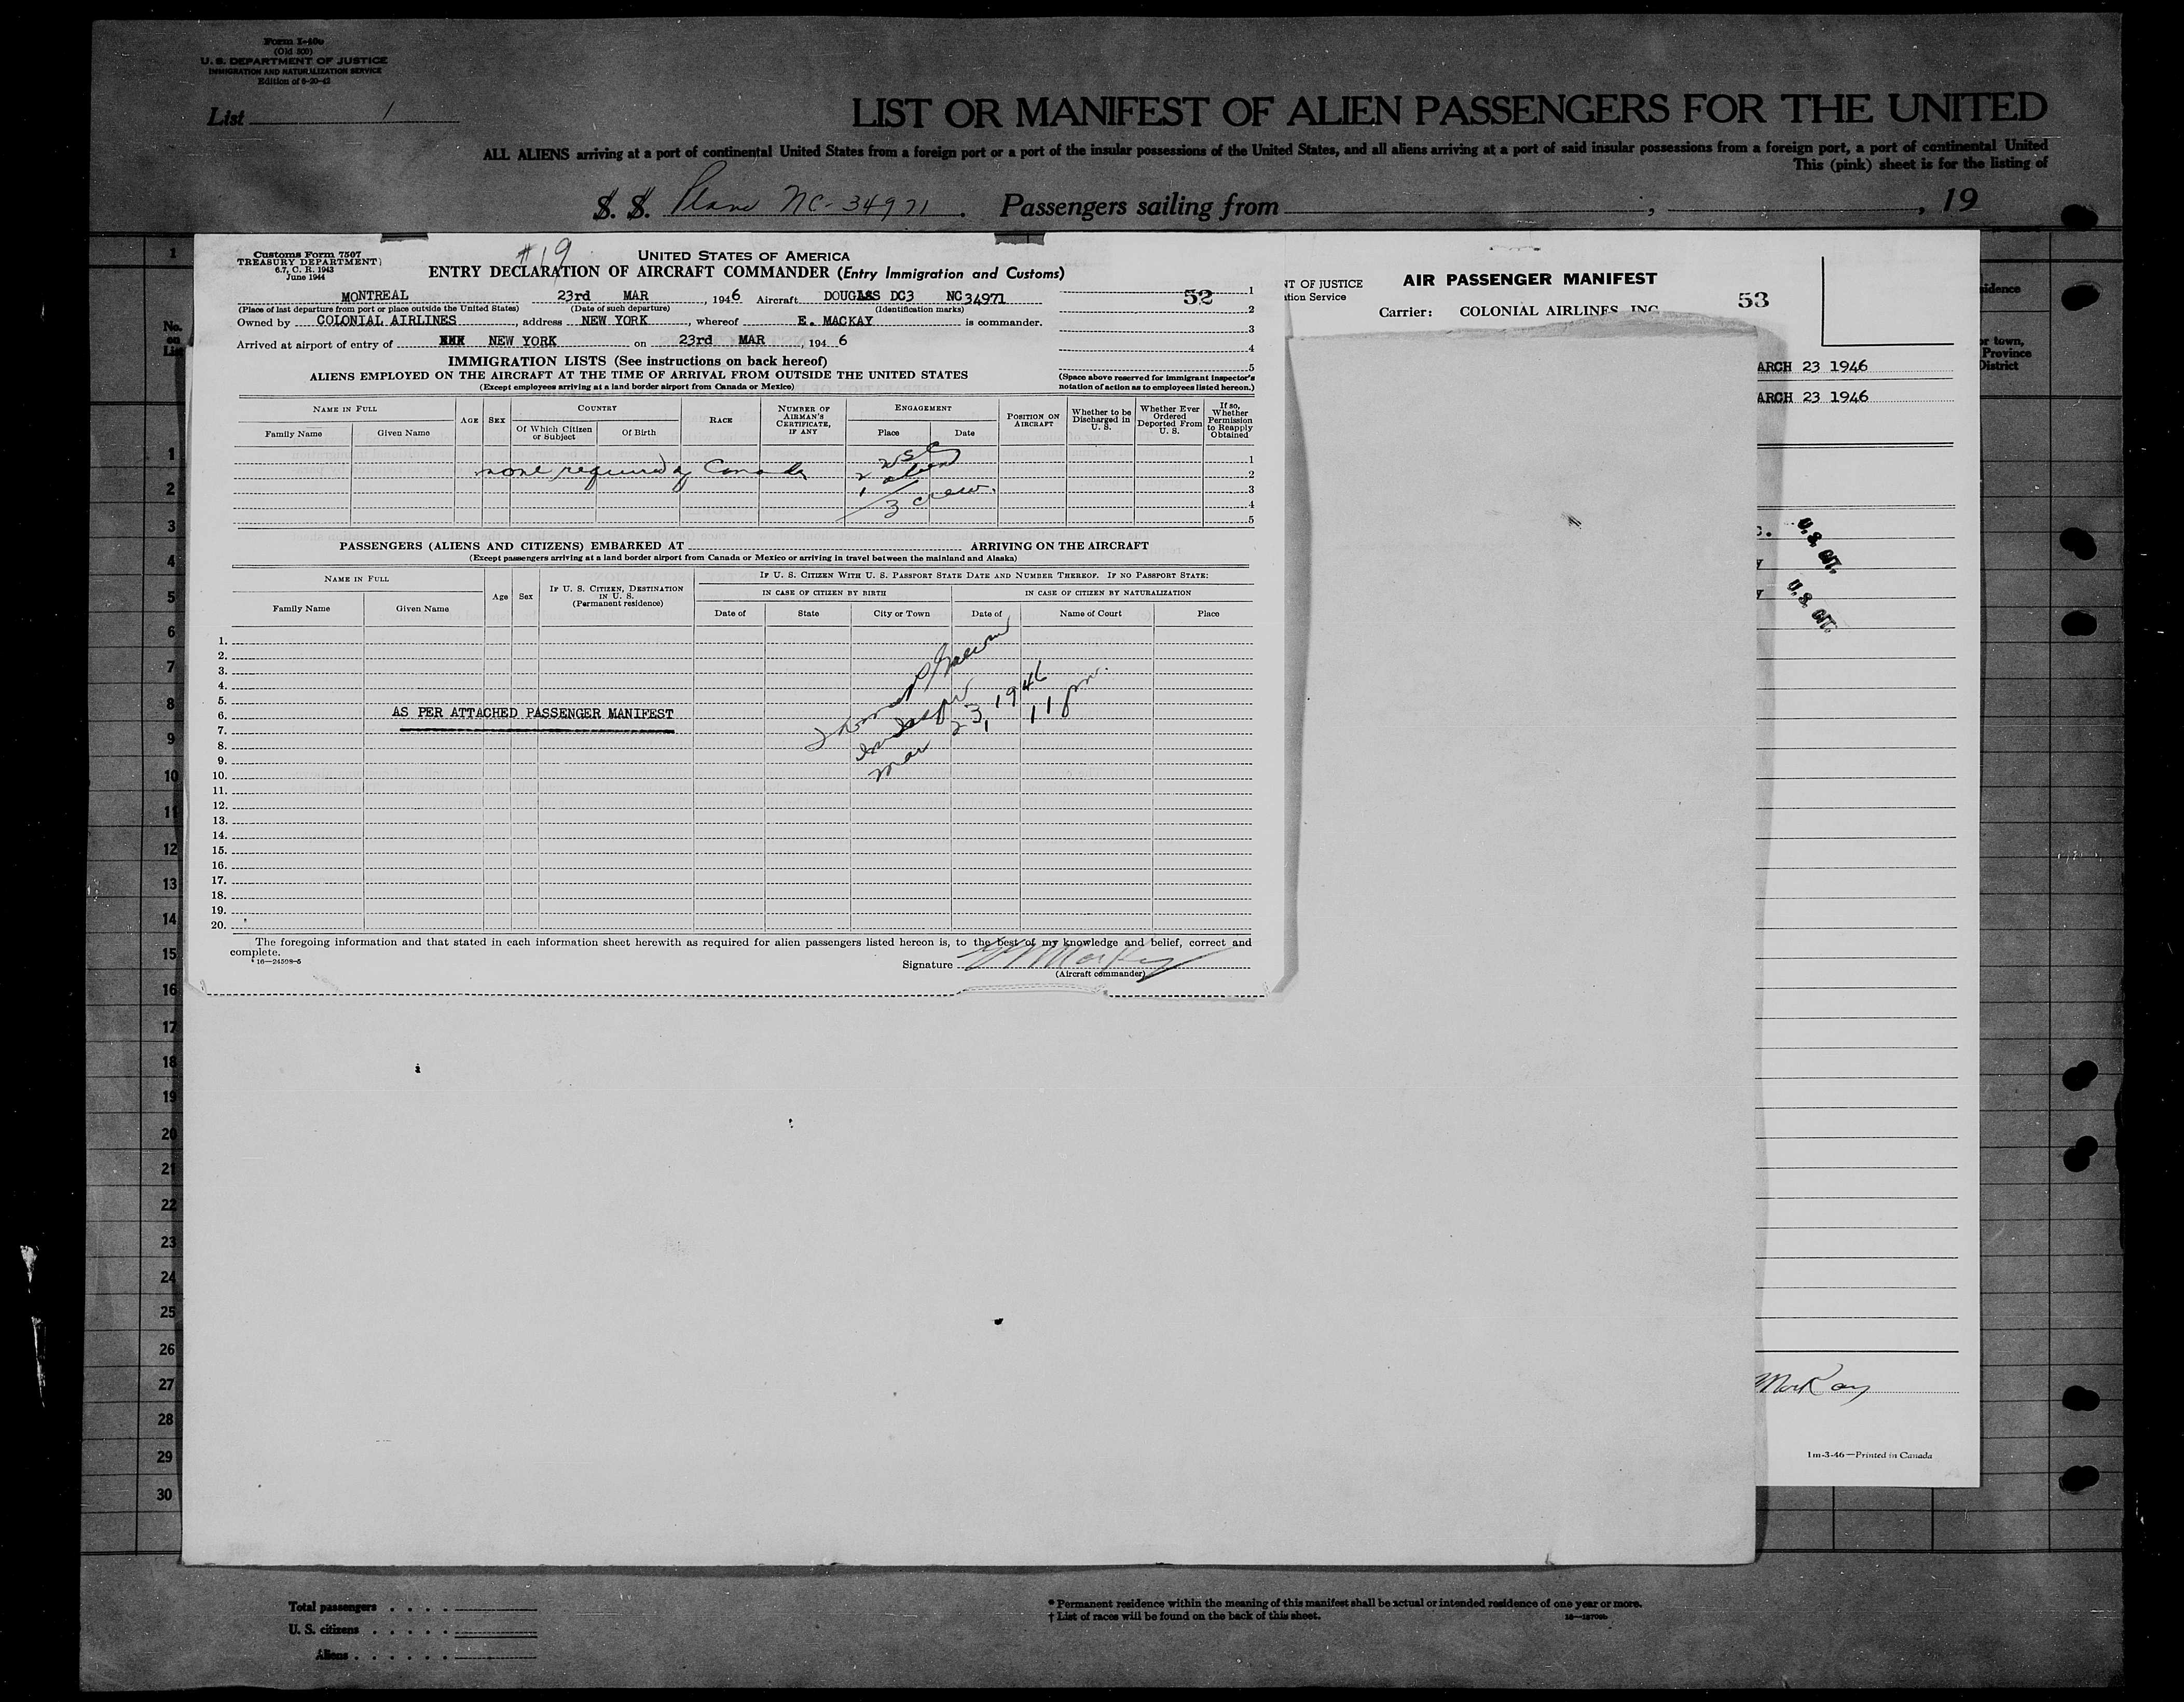 Form I-40e
(Old 500)
U. S. DEPARTMENT OF JUSTICE
IMMIGRATION AND NATURALIZATION SERVICE
Edition of 6-20-42
List 1
LIST OR MANIFEST OF ALIEN PASSENGERS FOR THE UNITED
ALL ALIENS arriving at a port of continental United States from a foreign port or a port of the insular possessions of the United States, and all aliens arriving at a port of said insular possessions from a foreign port, a port of continental United
This (pink) sheet is for the listing of
S. S. Plane NC-34971. Passengers sailing from , , 19
Customs Form 7507
TREASURY DEPARTMENT
6.7, C. R. 1943
June 1944
#19
UNITED STATES OF AMERICA
ENTRY DECLARATION OF AIRCRAFT COMMANDER (Entry Immigration and Customs)
MONTREAL 23rd MAR, 1946 Aircraft DOUGLAS DC3 NC34971
(Place of last departure from port or place outside the United States) (Date of such departure) (Identification marks)
Owned by COLONIAL AIRLINES, address NEW YORK, whereof E. MACKAY is commander.
Arrived at airport of entry of NEW YORK on 23rd MAR, 1946
52
1
2
3
4
5
(Space above reserved for immigrant inspector's notation of action as to employees listed hereon.)
IMMIGRATION LISTS (See instructions on back hereof)
ALIENS EMPLOYED ON THE AIRCRAFT AT THE TIME OF ARRIVAL FROM OUTSIDE THE UNITED STATES
(Except employees arriving at a land border airport from Canada or Mexico)
NAME IN FULL
Family Name Given Name
AGE SEX
COUNTRY
Of Which Citizen or Subject Of Birth
RACE
NUMBER OF AIRMAN'S CERTIFICATE, IF ANY
ENGAGEMENT
Place Date
POSITION ON AIRCRAFT
Whether to be Discharged in U. S.
Whether Ever Ordered Deported From U. S.
If so, Whether Permission to Reapply Obtained
none required Canada
2 USC
1 alien
3 crew.
1
2
3
4
5
PASSENGERS (ALIENS AND CITIZENS) EMBARKED AT ARRIVING ON THE AIRCRAFT
(Except passengers arriving at a land border airport from Canada or Mexico or arriving in travel between the mainland and Alaska)
NAME IN FULL
Family Name Given Name
Age Sex
IF U. S. CITIZEN, DESTINATION IN U. S.
(Permanent residence)
IF U. S. CITIZEN WITH U. S. PASSPORT STATE DATE AND NUMBER THEREOF. IF NO PASSPORT STATE:
IN CASE OF CITIZEN BY BIRTH IN CASE OF CITIZEN BY NATURALIZATION
Date of State City or Town Date of Name of Court Place
1.
2.
3.
4.
5.
6.
7.
8.
9.
10.
11.
12.
13.
14.
15.
16.
17.
18.
19.
20.
AS PER ATTACHED PASSENGER MANIFEST
Mar 23, 1946
11 pm.
The foregoing information and that stated in each information sheet herewith as required for alien passengers listed hereon is, to the best of my knowledge and belief, correct and
complete.
16—24508-5
Signature E MacKay
(Aircraft commander)
NT OF JUSTICE
tion Service
AIR PASSENGER MANIFEST
Carrier: COLONIAL AIRLINES, INC
53
ARCH 23 1946
ARCH 23 1946
U. S. CIT.
U. S. CIT.
MacKay
1m-3-46—Printed in Canada
sidence
or town,
Province
District
No. on List
1
1
2
3
4
5
6
7
8
9
10
11
12
13
14
15
16
17
18
19
20
21
22
23
24
25
26
27
28
29
30
Total passengers
U. S. citizens
Aliens
* Permanent residence within the meaning of this manifest shall be actual or intended residence of one year or more.
† List of races will be found on the back of this sheet.